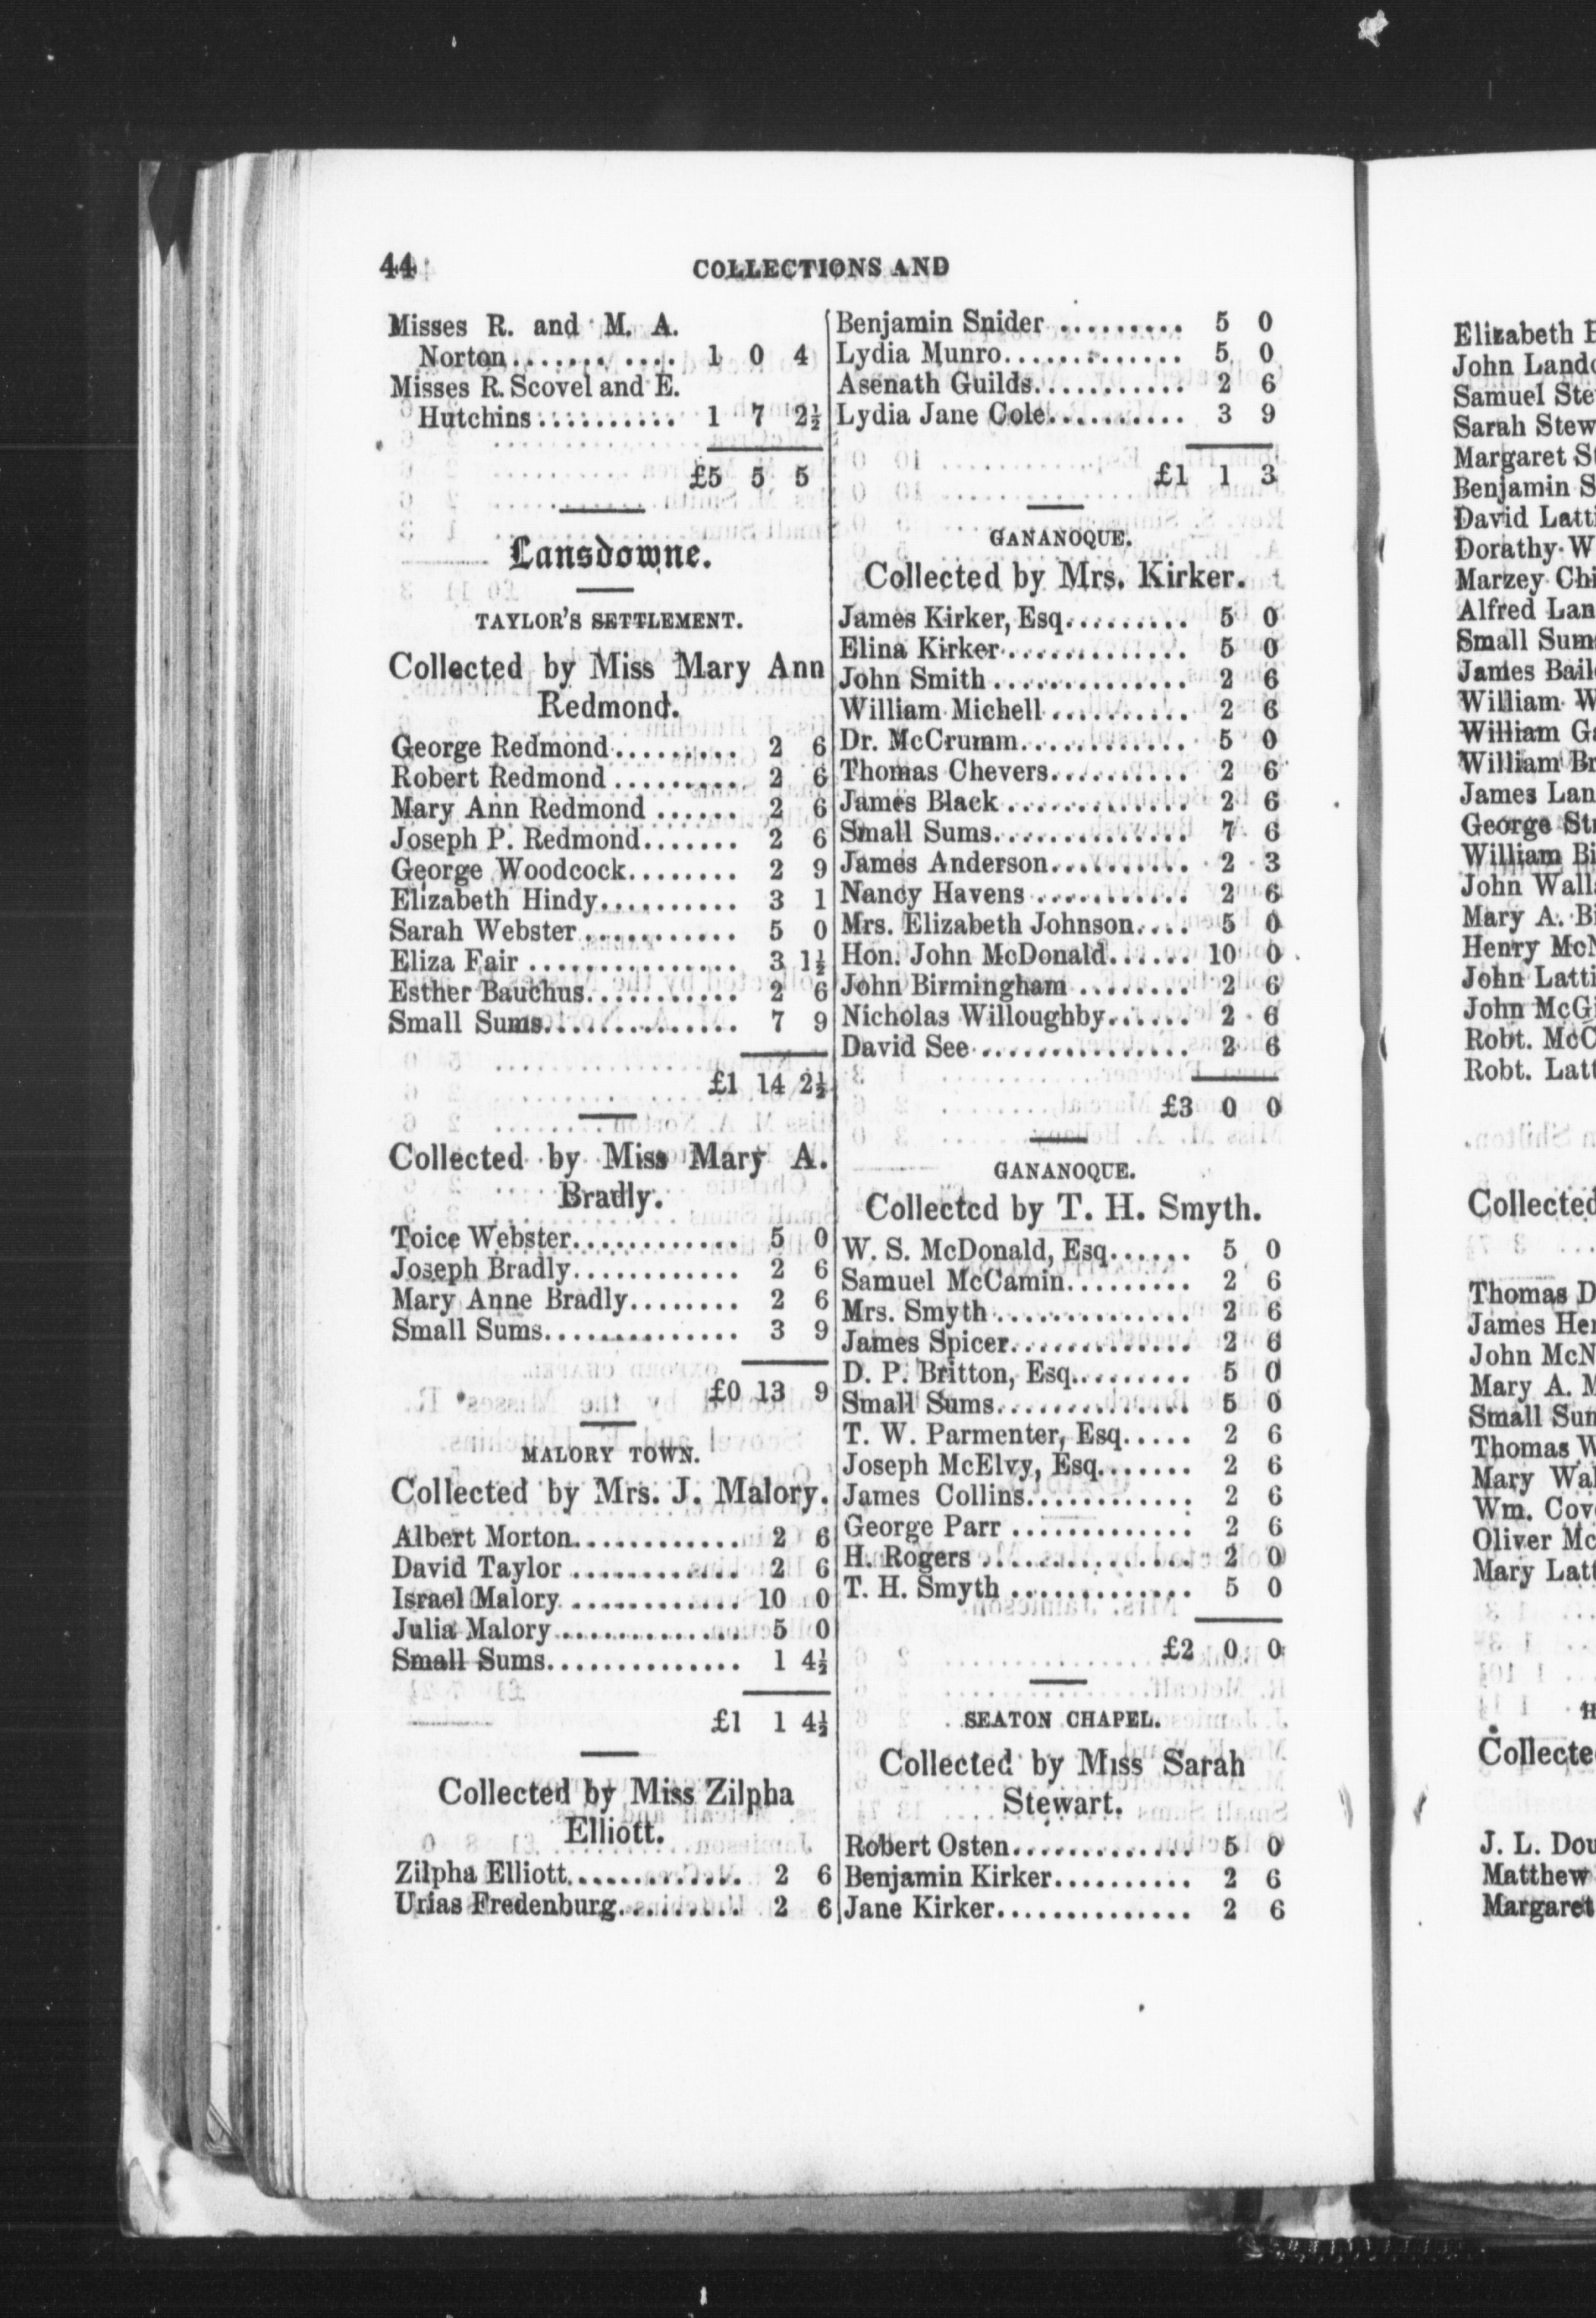 44
COLLECTIONS AND
Misses R. and M. A.
Norton........... 1 0 4
Misses R. Scovel and E.
Hutchins.......... 1 7 2½
£5 5 5
Lansdowne.
TAYLOR'S SETTLEMENT.
Collected by Miss Mary Ann
Redmond.
George Redmond......... 2 6
Robert Redmond......... 2 6
Mary Ann Redmond ...... 2 6
Joseph P. Redmond....... 2 6
George Woodcock........ 2 9
Elizabeth Hindy.......... 3 1
Sarah Webster........... 5 0
Eliza Fair ............... 3 1½
Esther Bauchus........... 2 6
Small Sums.............. 7 9
£1 14 2½
Collected by Miss Mary A.
Bradly.
Toice Webster............ 5 0
Joseph Bradly............ 2 6
Mary Anne Bradly........ 2 6
Small Sums.............. 3 9
£0 13 9
MALORY TOWN.
Collected by Mrs. J. Malory.
Albert Morton............ 2 6
David Taylor ............ 2 6
Israel Malory ............ 10 0
Julia Malory............. 5 0
Small Sums.............. 1 4½
£1 1 4½
Collected by Miss Zilpha
Elliott.
Zilpha Elliott............ 2 6
Urias Fredenburg......... 2 6
Benjamin Snider ......... 5 0
Lydia Munro............. 5 0
Asenath Guilds........... 2 6
Lydia Jane Cole.......... 3 9
£1 1 3
GANANOQUE.
Collected by Mrs. Kirker.
James Kirker, Esq......... 5 0
Elina Kirker............. 5 0
John Smith.............. 2 6
William Michell.......... 2 6
Dr. McCrumm............ 5 0
Thomas Chevers.......... 2 6
James Black............. 2 6
Small Sums.............. 7 6
James Anderson.......... 2 3
Nancy Havens ........... 2 6
Mrs. Elizabeth Johnson.... 5 0
Hon. John McDonald...... 10 0
John Birmingham ........ 2 6
Nicholas Willoughby...... 2 6
David See............... 2 6
£3 0 0
GANANOQUE.
Collectcd by T. H. Smyth.
W. S. McDonald, Esq...... 5 0
Samuel McCamin......... 2 6
Mrs. Smyth.............. 2 6
James Spicer............. 2 6
D. P. Britton, Esq......... 5 0
Small Sums.............. 5 0
T. W. Parmenter, Esq..... 2 6
Joseph McElvy, Esq....... 2 6
James Collins............ 2 6
George Parr ............. 2 6
H. Rogers ............... 2 0
T. H. Smyth ............. 5 0
£2 0 0
SEATON CHAPEL.
Collected by Miss Sarah
Stewart.
Robert Osten............. 5 0
Benjamin Kirker.......... 2 6
Jane Kirker.............. 2 6
Elizabeth
John
Samuel
Sarah
Margaret
Benjamin
David
Dorathy
Marzey
Alfred
Small
James
William
William
William
James
George
William
John
Mary A.
Henry
John
John
Robt.
Robt.
Collected
Thomas
James
John
Mary A.
Small
Thomas
Mary
Wm.
Oliver
Mary
J. L.
Matthew
Margaret